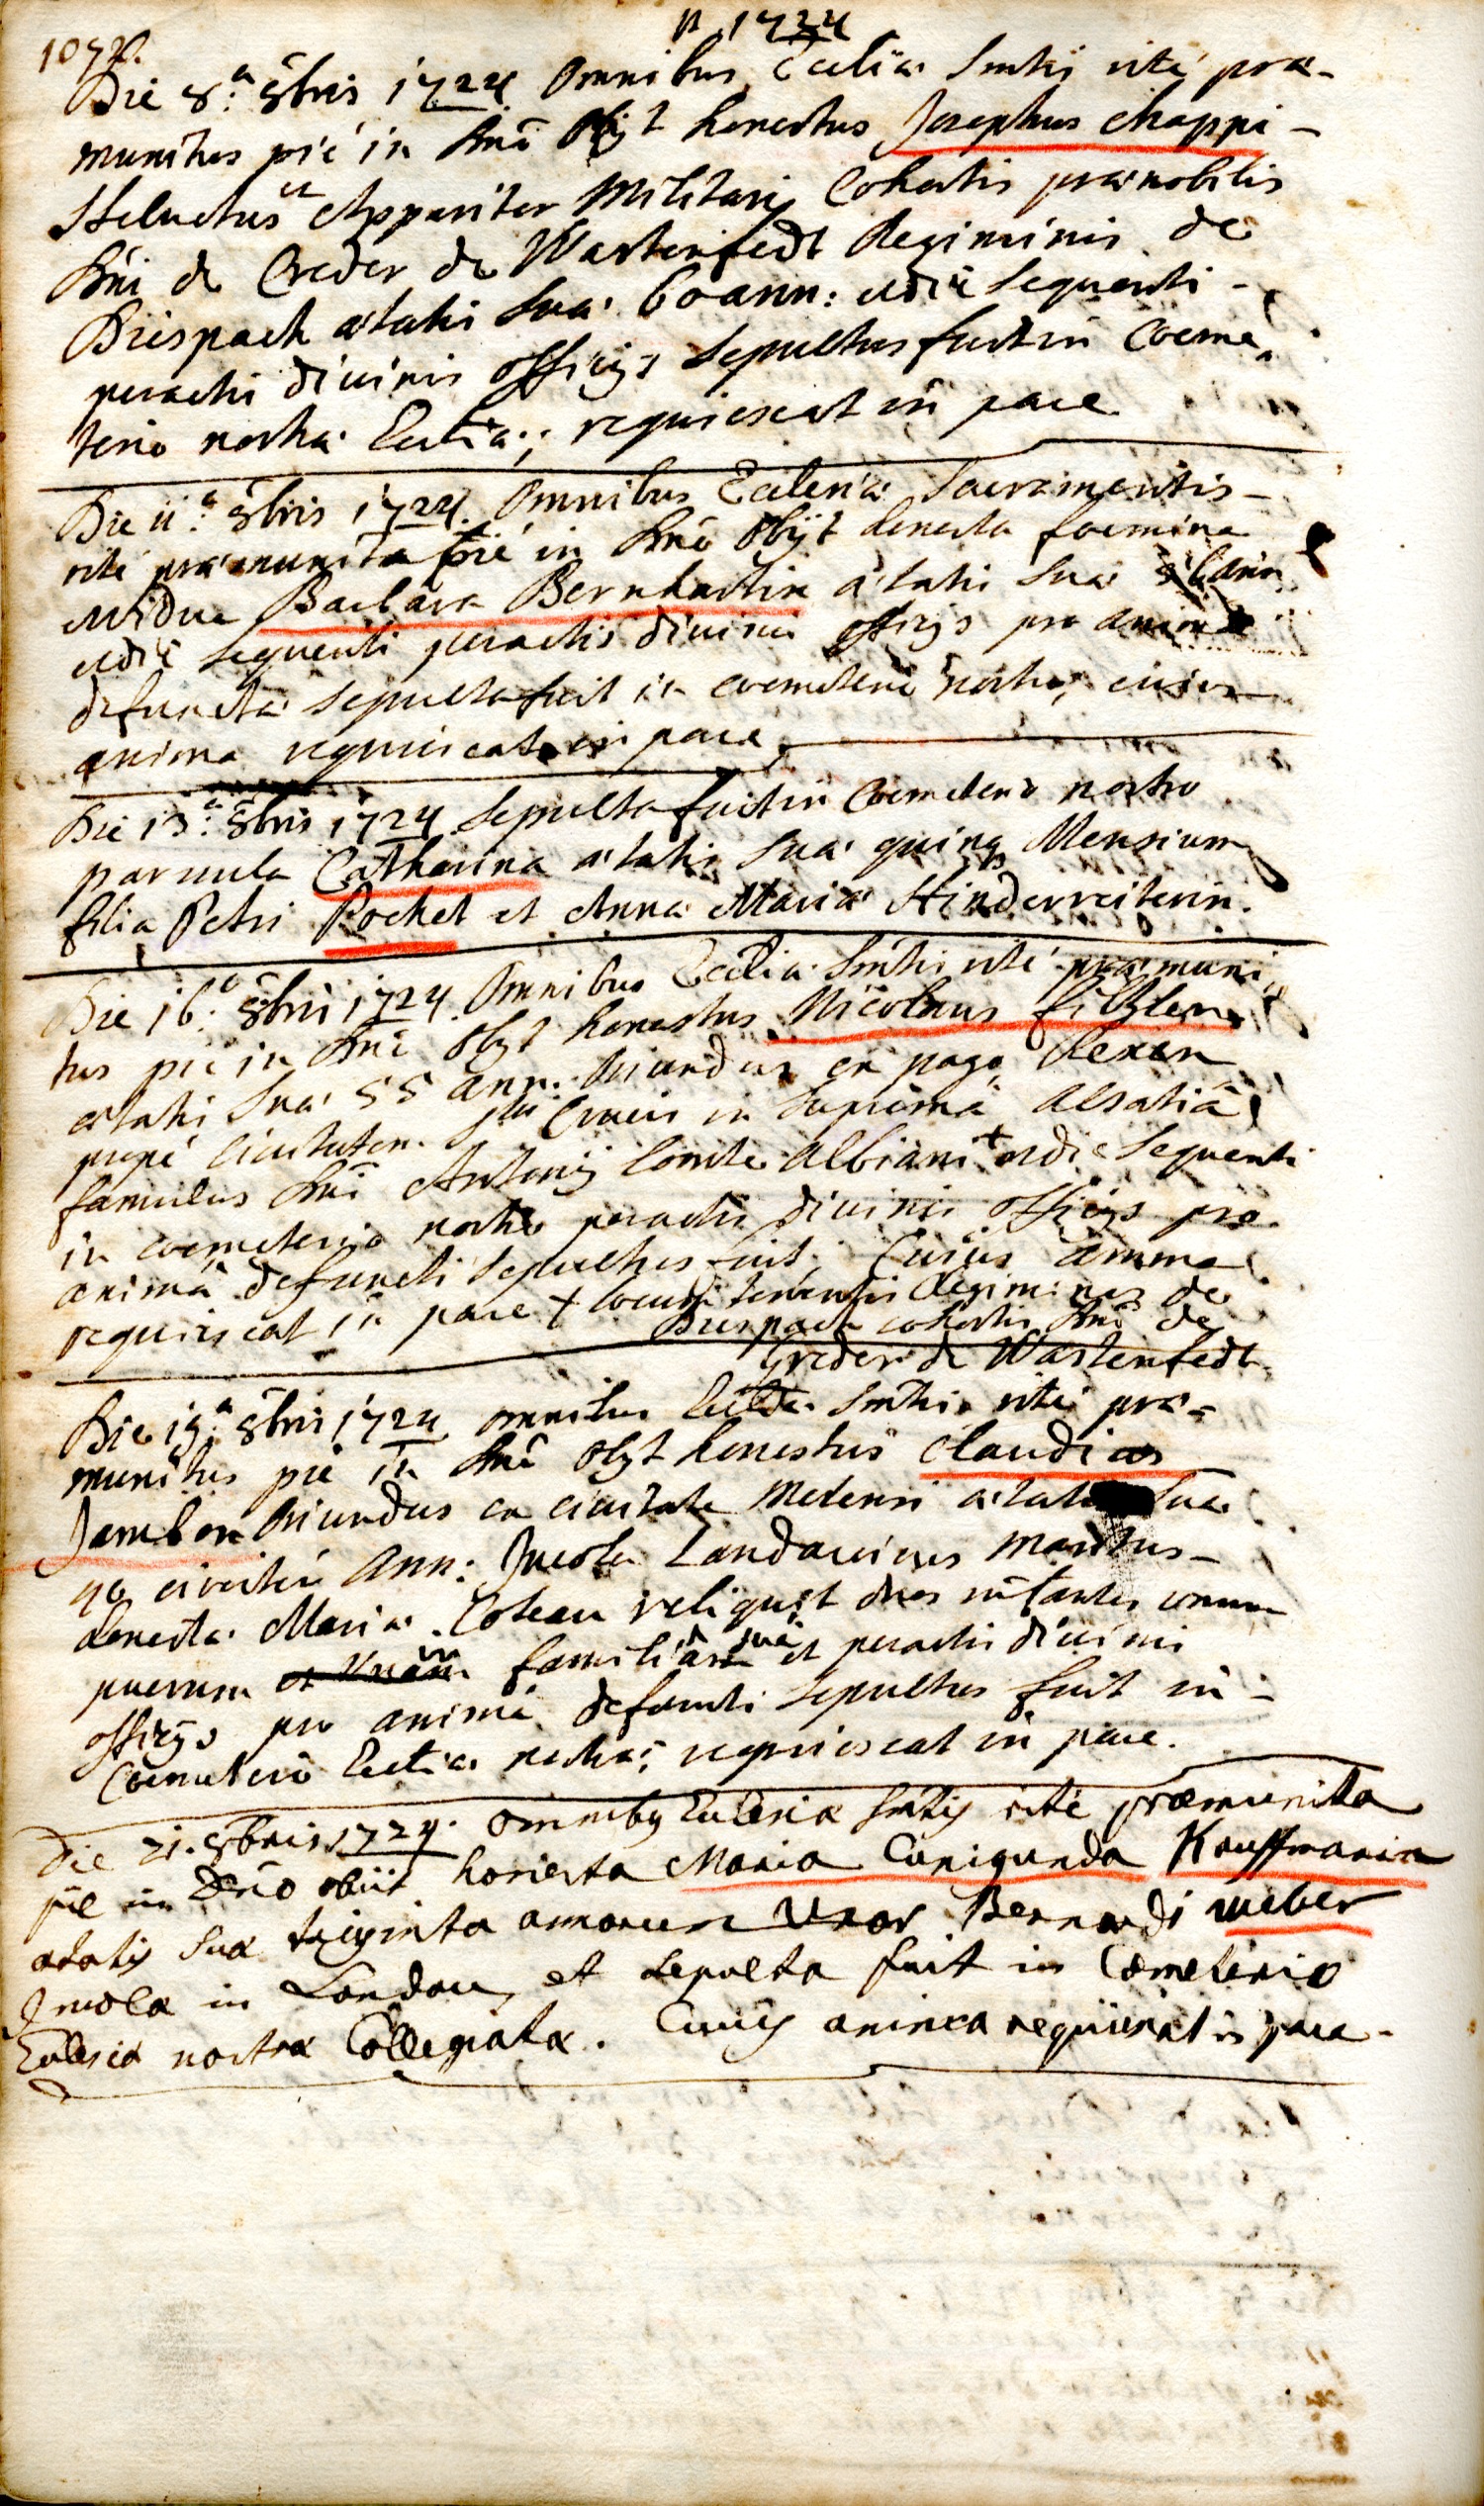 1724
Die 8.a 8bris 1724 Omnibus Ecclia Smtis rite præ-
munitus pié in Dnō Obijt honestus Josephus chappi-
Heluetus Appariter Militaris Cohortis prænobilis
Dni de Creder de Wartenfedt Regiminis de
Bispach ætatis Suæ 60 ann: die Sequenti-
peractis diuinis officijs Sepultus fuit in Coeme-
terio nostræ Ecclia; requiescat in pace
Die 11.a 8bris 1724. Omnibus Ecclesiæ Sacramentis-
rité præmunita pié in Dnō Obijt honesta foemina
vidua Barbara Bernhartin ætatis Suæ
die Sequenti peractis diuinis officijs pro anima
defunctæ Sepulta fuit in coemeterio nostro, cuius
anima requiescat in pace
Die 13.a 8bris 1724 Sepulta fuit in Coemeterio nostro
paruula Catharina ætatis Suæ quinq Mensium
filia Petri Rochet et Anna Maria Hinderreiterin.
Die 16.a 8bris 1724. Omnibus Ecclia Smtis rité præmuni
tus pié in Dnō Obijt honestus Nicolaus
ætatis Suæ 55 ann: oriundus ex pago
propé Ciuitatem Stæ Crucis in Superiora Alsatiâ
famulus Dni Antonij Comte Albiani + die Sequenti
in coemeterio nostro peractis diuinis officijs pro
animâ defuncti Sepultus fuit, Cuius anima
requiescat in pace + locum tenentis Regiminis de
Bispach cohortis Dni de
Greder de Wartenfedt
Die 19.a 8bris 1724 omnibus Smtis rité præ-
munitus pié in Dnō Obijt honestus claudius
Jambon oriundus ex ciuitate Metensi ætatis Suæ
40 circiter Ann: Incola Landauiensis Maritus-
honestæ Mariæ Coteau reliquit duos infantes unum
puerum et unam familiam suâ et peractis diuinis
officijs pro animâ defuncti Sepultus fuit in-
Coemeterio Ecclia nostræ; requiescat in pace.
Die 21. 8bris 1724. omnibus Ecclesiæ Smtis rité præmunita
pie in Dno obiit honesta Maria Cunigunda Kauffmanin
ætatis Suæ triginta annorum Uxor Bernardi weber
Incolæ in Landau, et sepulta fuit in Cœmeterio
Ecclesiæ nostræ Collegiatæ. Cuius anima requiescat in pace-